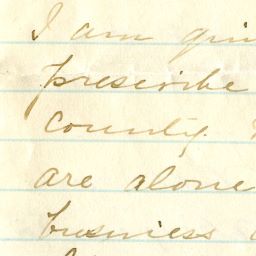 I am
prescribe
county.
are alone
business